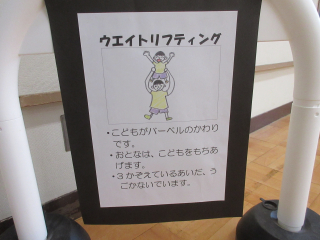 ウエイトリフティング
・こどもがバーベルのかわり
です。
・おとなは、こどもをもちあ
げます。
・３かぞえているあいだ、う
ごかないでいます。